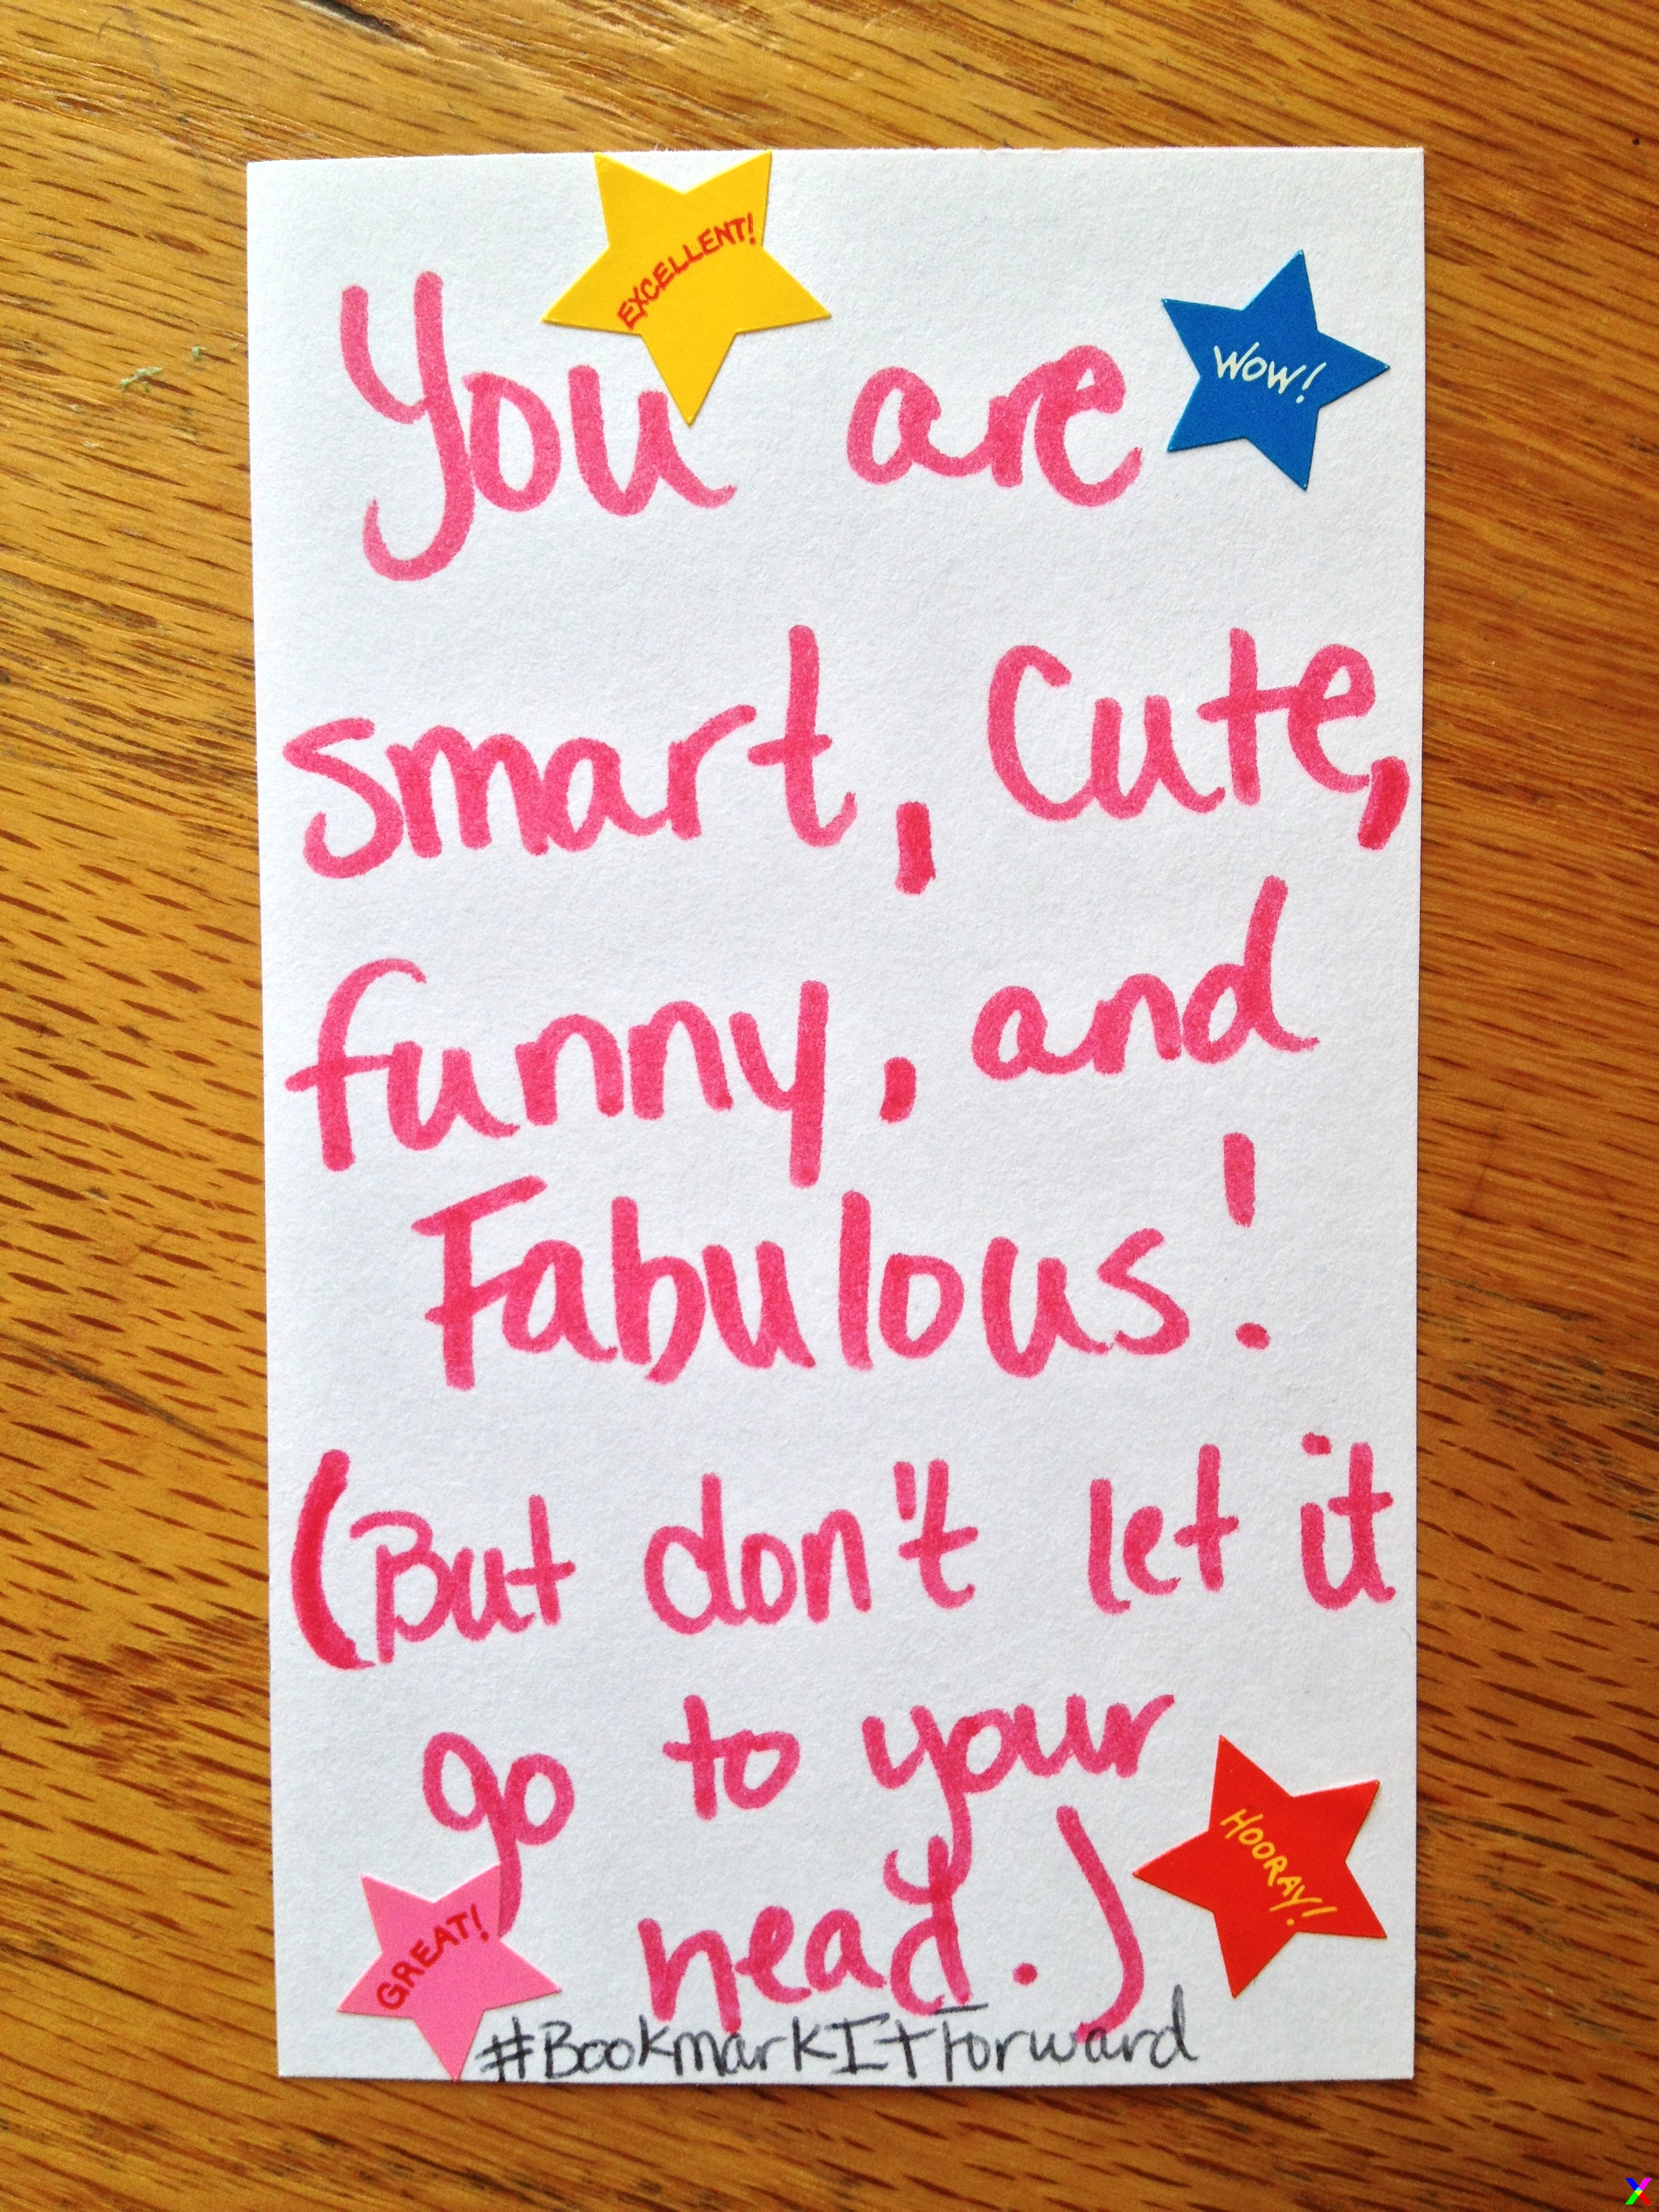 EXCELLENT!
WOW!
You are
smart, cute,
funny, and
Fabulous!
(But don't let it
go to your
head.)
HOORAY!
GREAT!
#BookmarkItForward
X